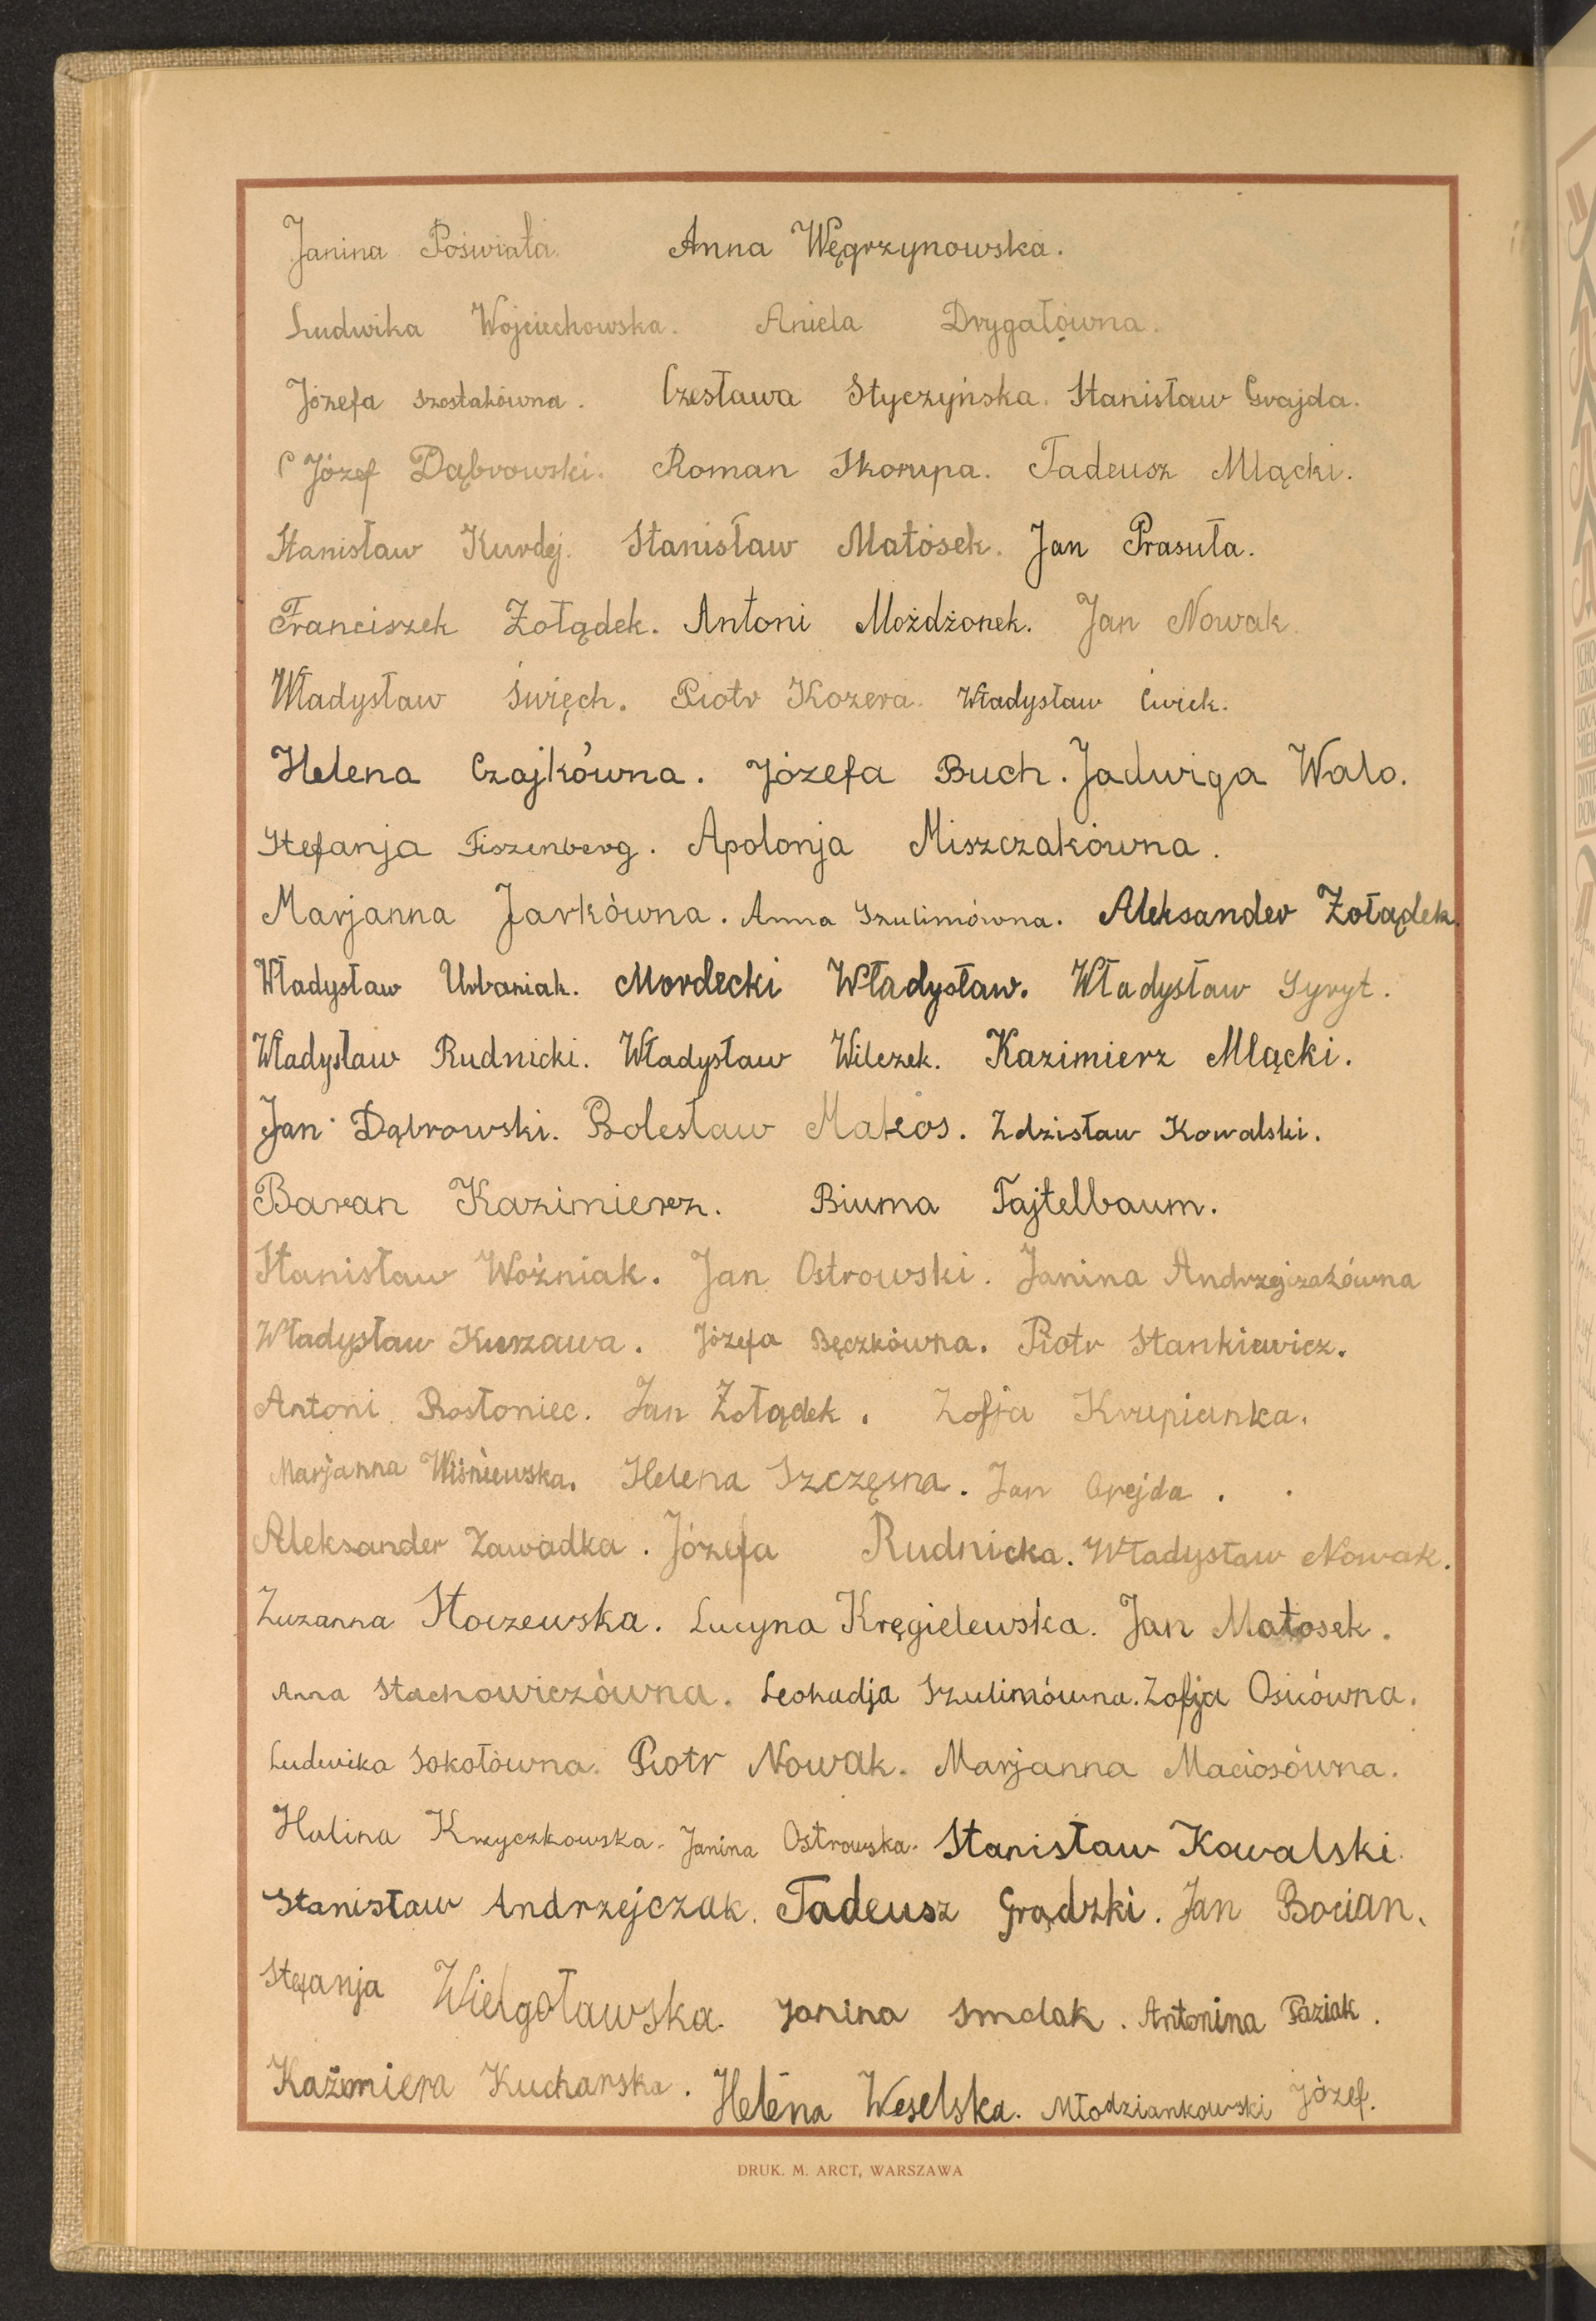 Janina Poświata. Anna Węgrzynowska.
Ludwika Wojciechowska. Aniela Drygałówna.
Józefa Szostakówna. Czesława Styczyńska. Stanisław Gvajda.
Józef Dąbrowski. Roman Skorupa. Tadeusz Mlącki.
Stanisław Kurdej. Stanisław Matosek. Jan Prasuła.
Franciszek Żołądek. Antoni Możdżonek. Jan Nowak.
Władysław Święch. Piotr Kozera. Władysław Ćwiek.
Helena Czajkówna. Józefa Buch. Jadwiga Walo.
Stefanja Fiszenberg. Apolonja Miszczakówna.
Marjanna Jarkówna. Anna Szulimówna. Aleksander Żołądek.
Władysław Urbaniak. Mordecki Władysław. Władysław Gyryt.
Władysław Rudnicki. Władysław Wilczek. Kazimierz Mlącki.
Jan Dąbrowski. Bolesław Makos. Zdzisław Kowalski.
Baran Kazimierz. Biuma Fajtelbaum.
Stanisław Woźniak. Jan Ostrowski. Janina Andrzejczakówna
Władysław Kurzawa. Józefa Bęczkówna. Piotr Stankiewicz.
Antoni Rostoniec. Jan Żołądek. Zofja Krupianka.
Marjanna Wiśniewska. Helena Szczęsna. Jan Grejda.
Aleksander Zawadka. Józefa Rudnicka. Władysław Nowak.
Zuzanna Stoczewska. Lucyna Kręgielewska. Jan Matosek.
Anna Stachowiczówna. Leokadja Szulimówna. Zofja Osicówna.
Ludwika Sokołówna. Piotr Nowak. Marjanna Maciosówna.
Halina Krzyczkowska. Janina Ostrowska. Stanisław Kowalski.
Stanisław Andrzejczak. Tadeusz Grądzki. Jan Bocian.
Stefanja Wielgoławska. Janina Smolak. Antonina Faziak.
Kaźmiera Kucharska. Helena Weselska. Młodziankowski Józef.
DRUK. M. ARCT, WARSZAWA